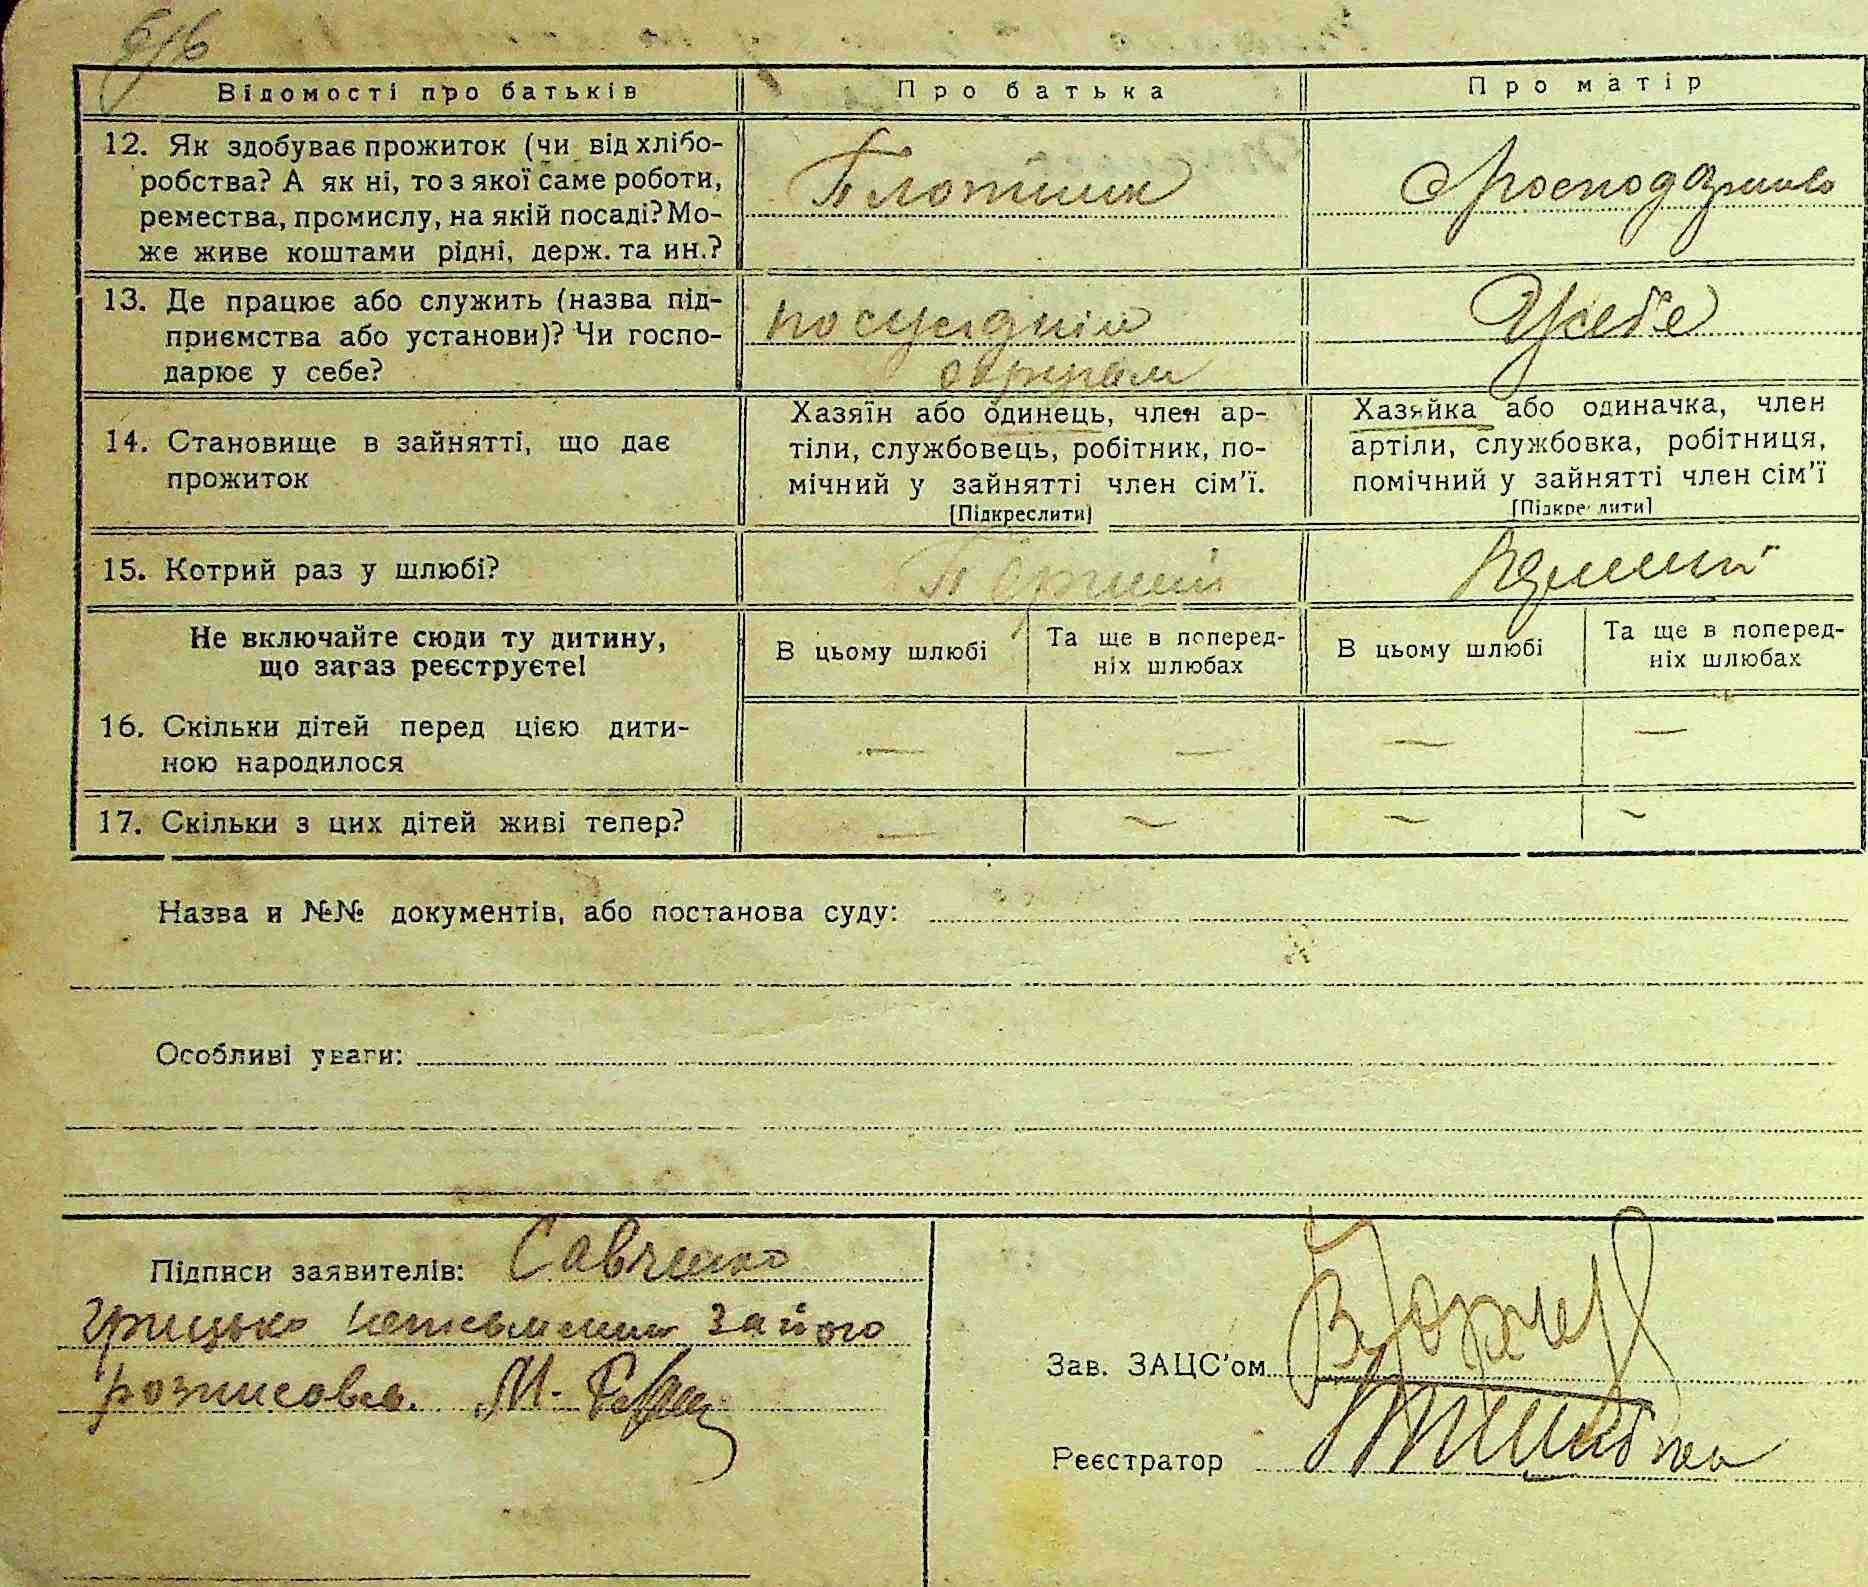 Відомості про батьків
Про батька
Про матір
12. Як здобуває прожиток (чи від хлібо-
робства? А як ні, то з якої саме роботи,
ремества, промислу, на якій посаді? Мо-
же живе коштами рідні, держ. та ин.?
Плотник
13. Де працює або служить (назва під-
приємства або установи)? Чи госпо-
дарює у себе?
по сусіднім
округам
У себе
14. Становище в зайнятті, що дає
прожиток
Хазяїн або одинець, член ар-
тіли, службовець, робітник, по-
мічний у зайнятті член сім'ї.
[Підкреслити]
Хазяйка або одиначка, член
артіли, службовка, робітниця,
помічний у зайнятті член сім'ї
[Підкреслити]
15. Котрий раз у шлюбі?
Перший
Не включайте сюди ту дитину,
що зараз реєструєте!
В цьому шлюбі
Та ще в поперед-
ніх шлюбах
В цьому шлюбі
Та ще в поперед-
ніх шлюбах
16. Скільки дітей перед цією дити-
ною народилося
— — — —
17. Скільки з цих дітей живі тепер?
— — — —
Назва и №№ документів, або постанова суду:
Особливі уваги:
Підписи заявителів: Савченко
Грицько неписьменний за його
розписався. М.
Зав. ЗАЦС'ом
Реєстратор